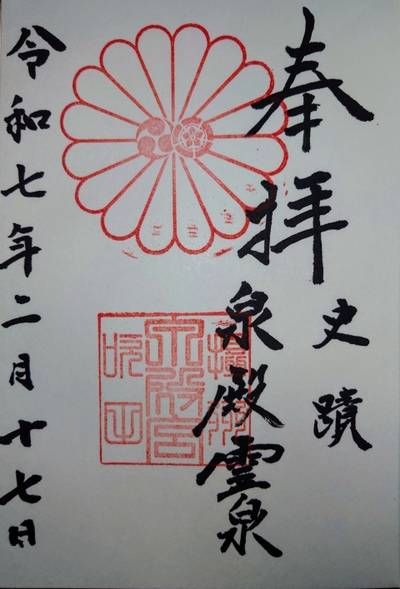 奉拝
史蹟
泉殿霊泉
令和七年二月十七日